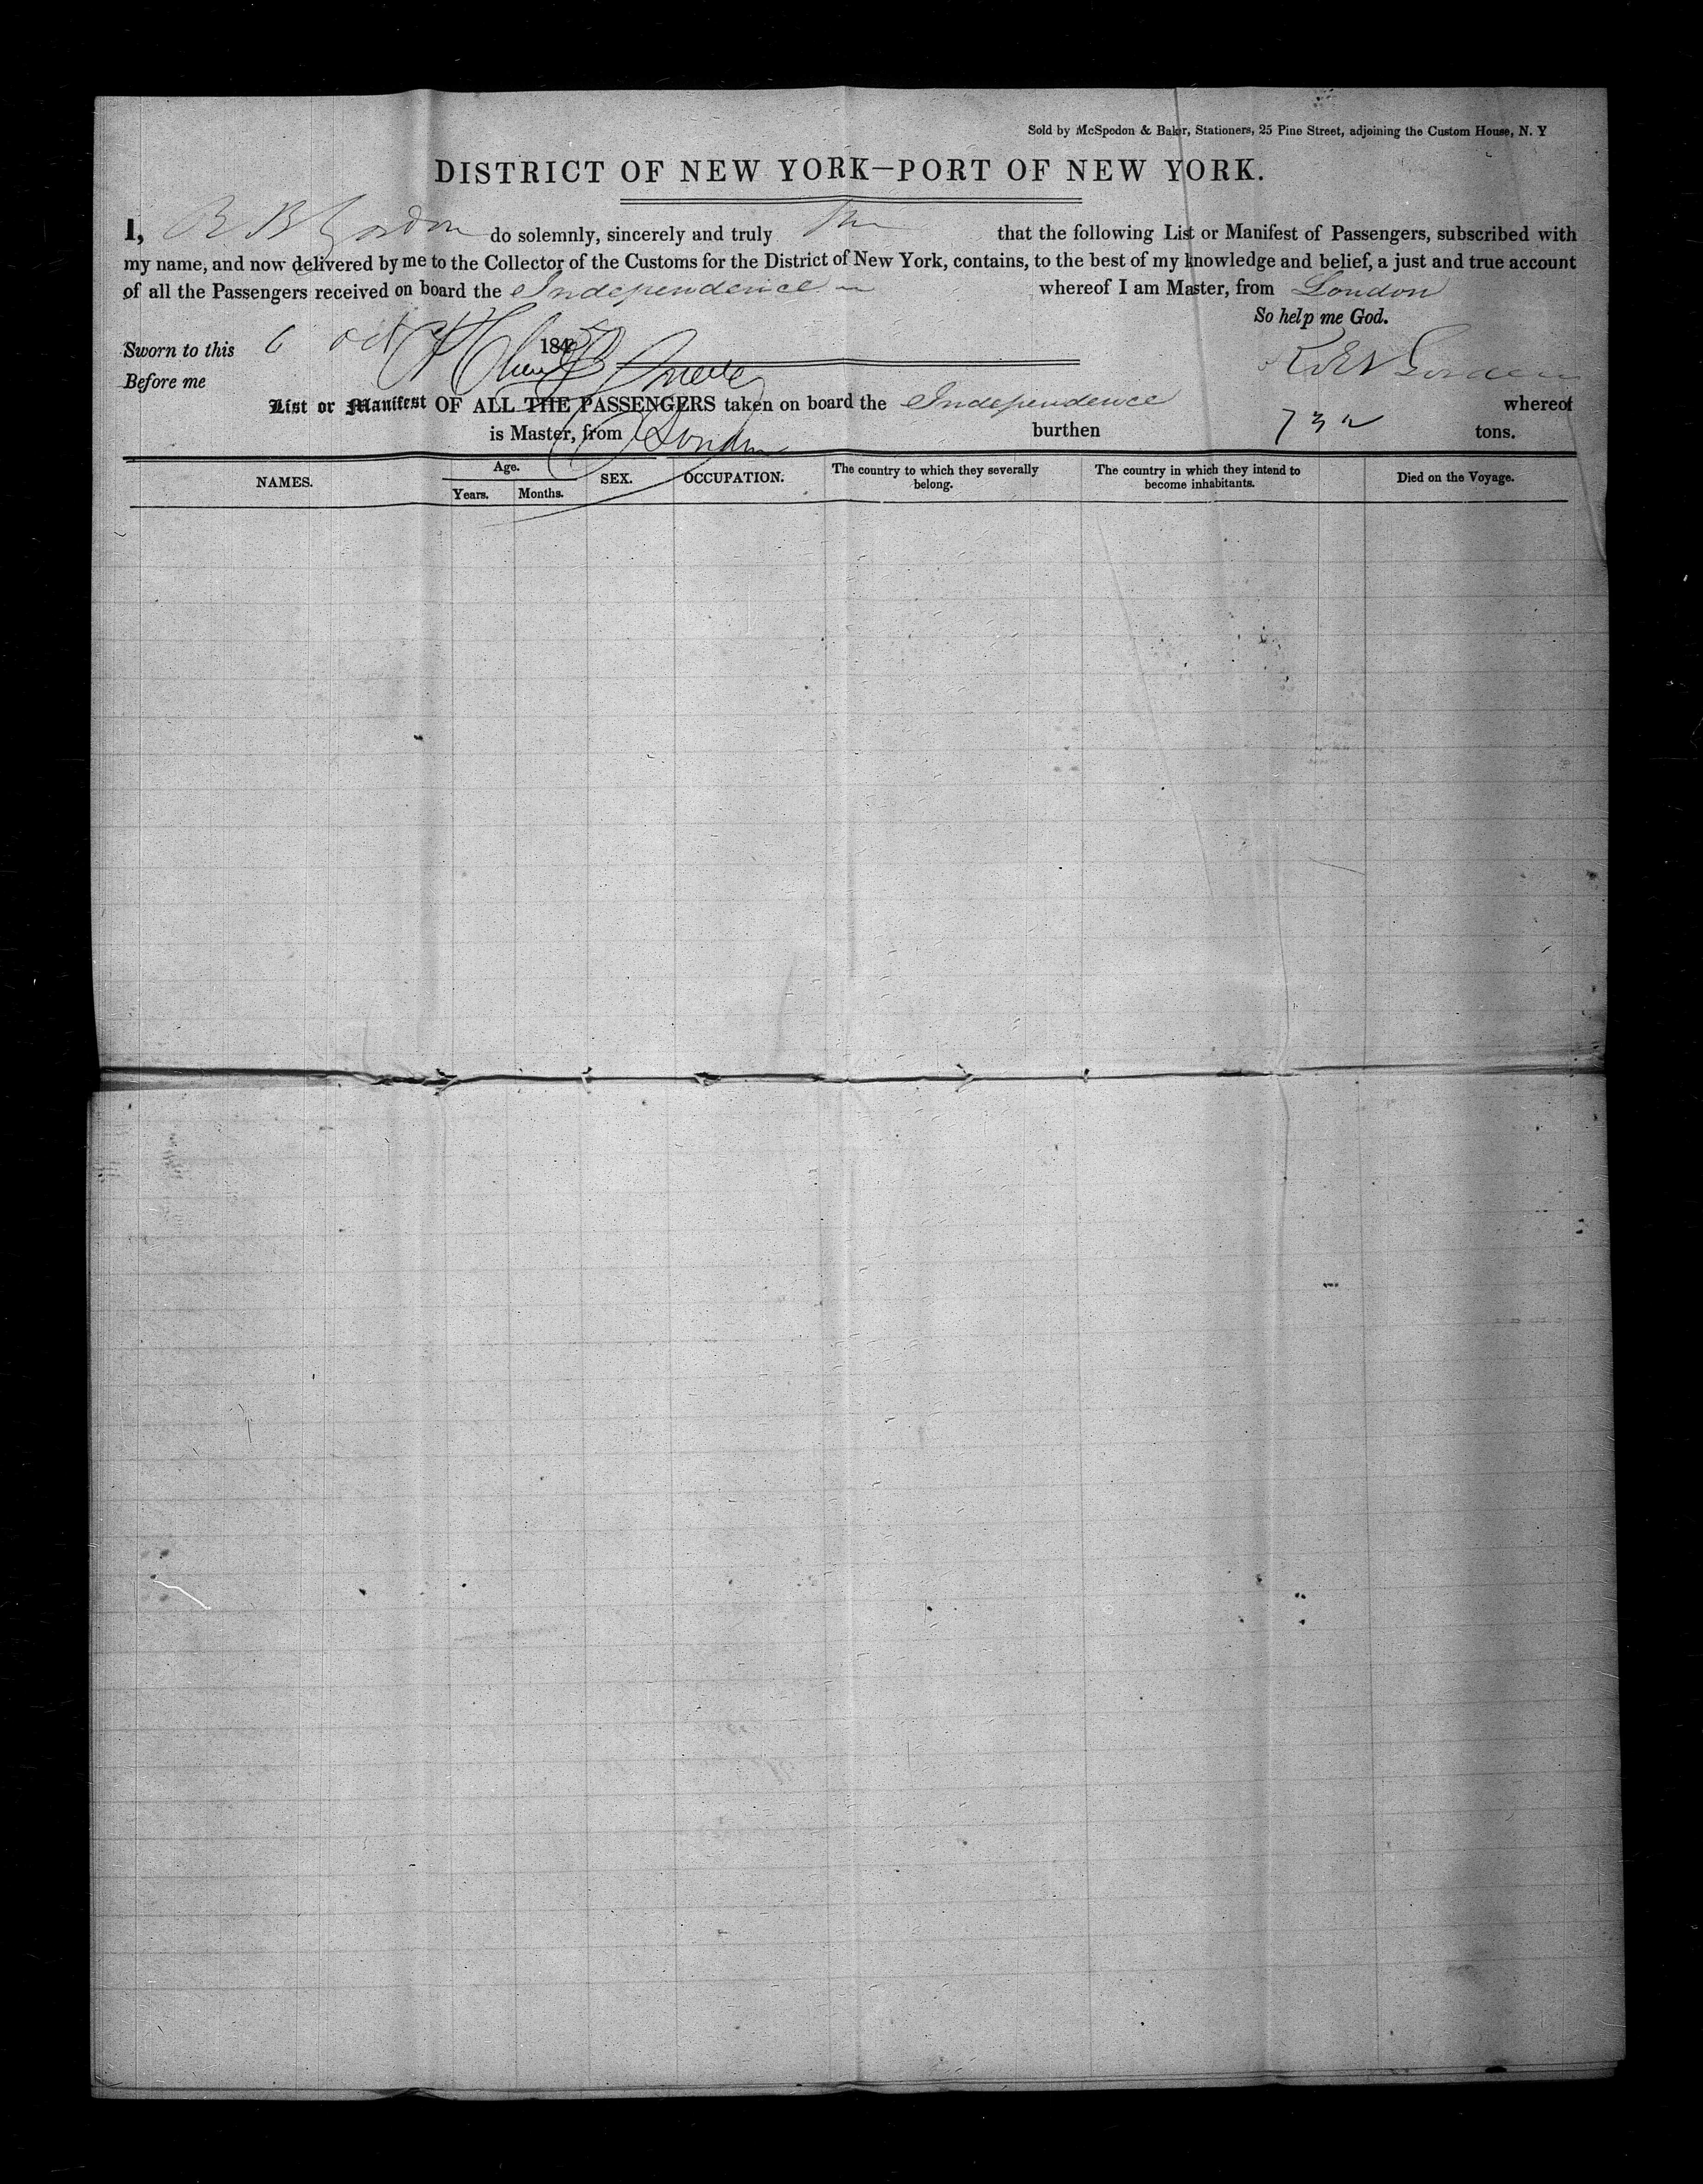 Sold by McSpedon & Baker, Stationers, 25 Pine Street, adjoining the Custom House, N. Y
DISTRICT OF NEW YORK—PORT OF NEW YORK.
I, do solemnly, sincerely and truly that the following List or Manifest of Passengers, subscribed with
my name, and now delivered by me to the Collector of the Customs for the District of New York, contains, to the best of my knowledge and belief, a just and true account
of all the Passengers received on board the Independence whereof I am Master, from London
So help me God.
Sworn to this 6 Oct 184
Before me
List or Manifest OF ALL THE PASSENGERS taken on board the Independence whereof
is Master, from London burthen 732 tons.
NAMES. Age. Years. Months. SEX. OCCUPATION. The country to which they severally belong. The country in which they intend to become inhabitants. Died on the Voyage.